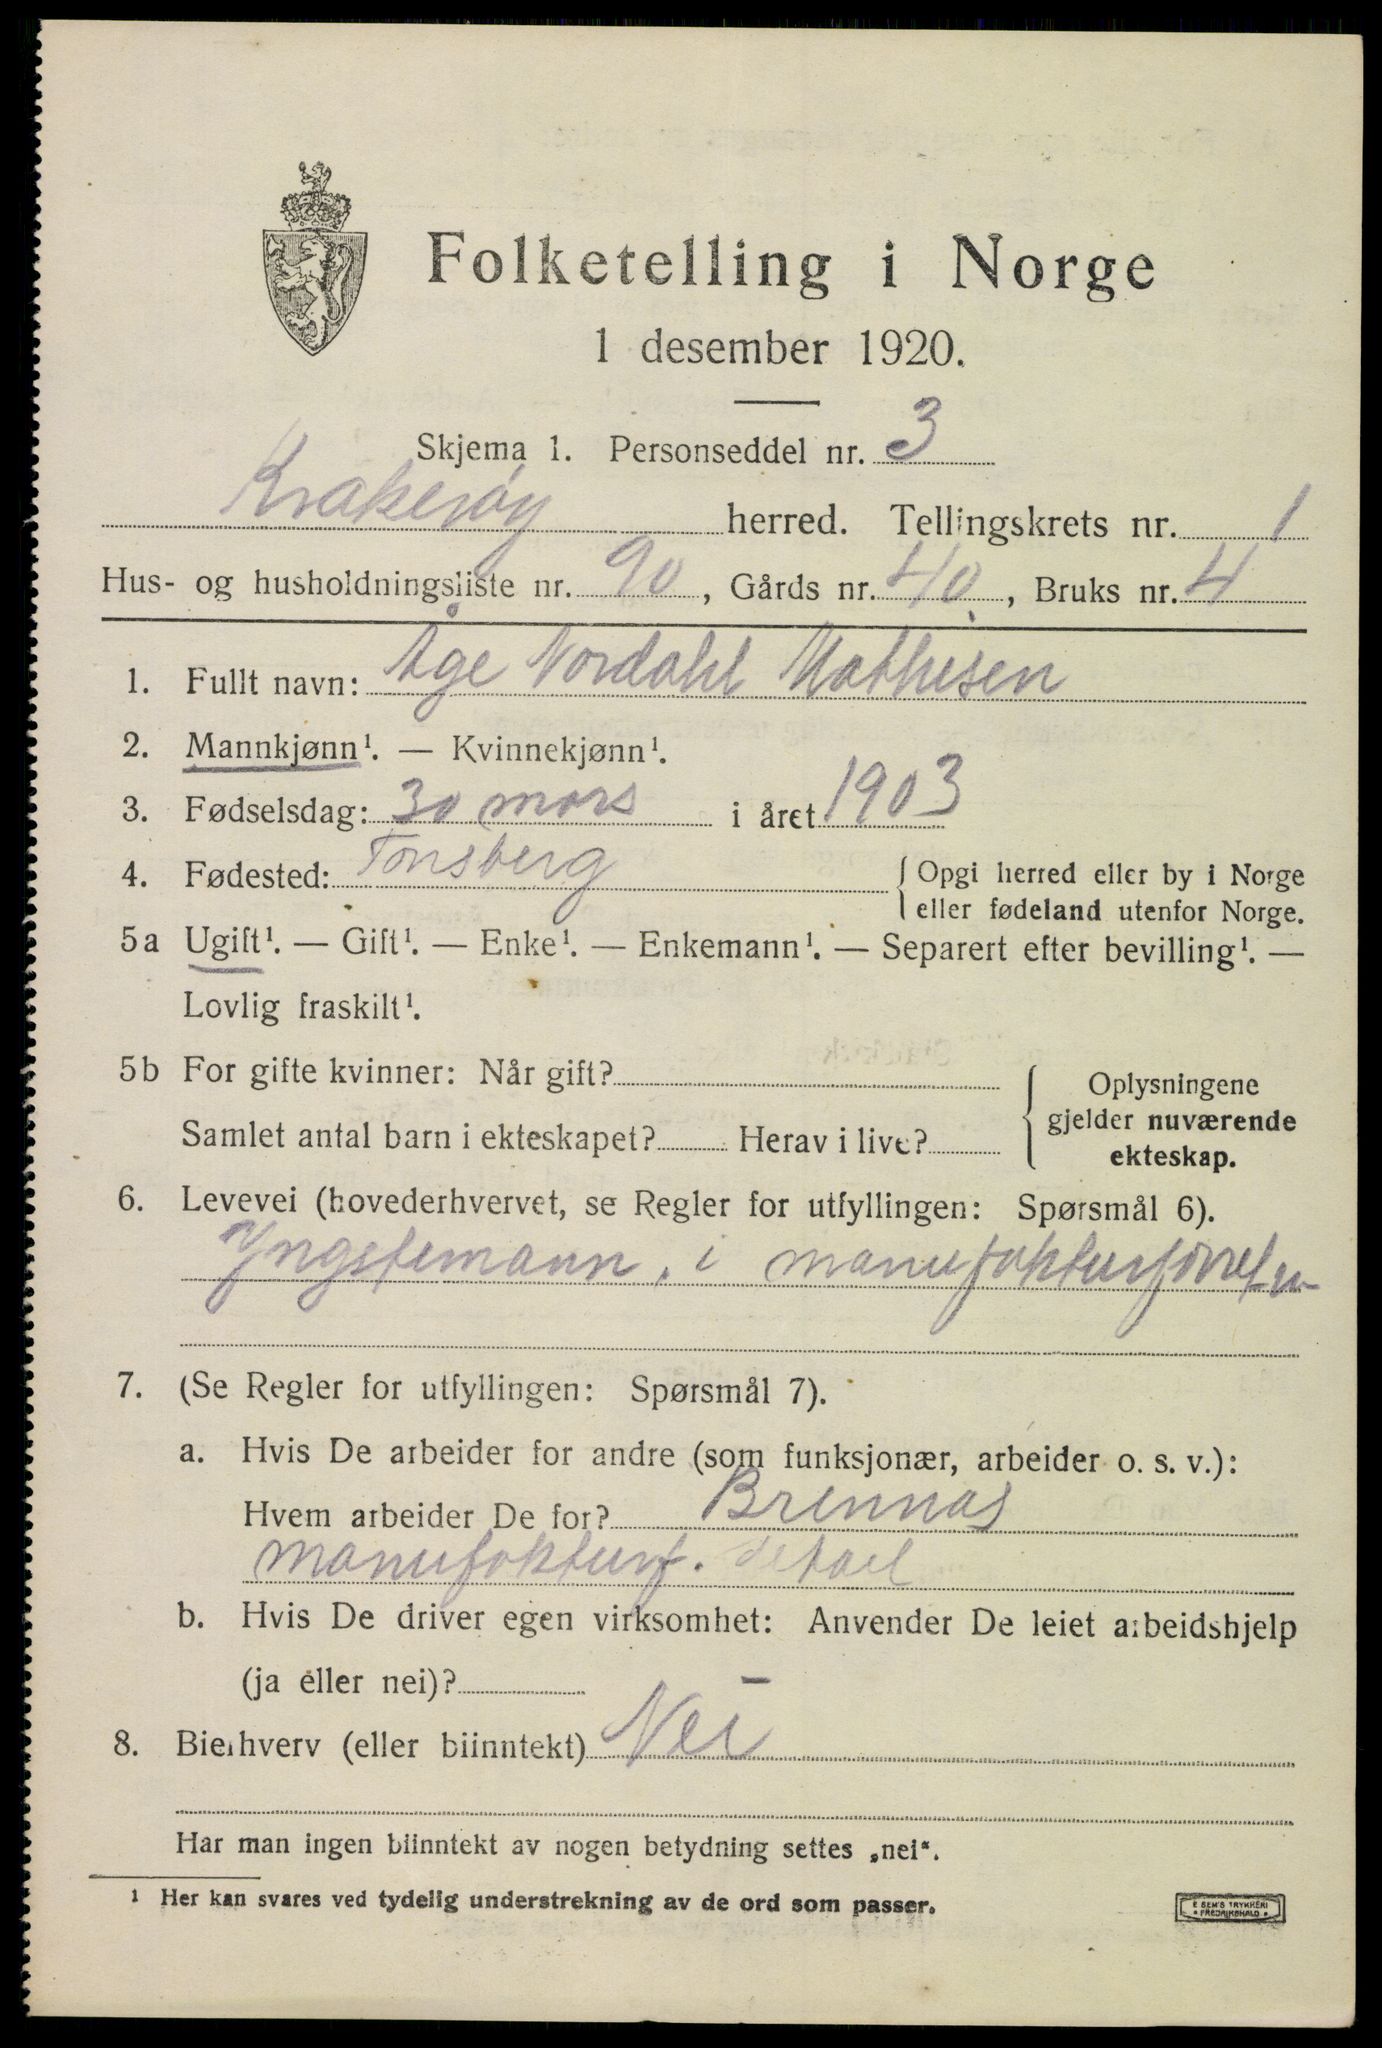 Folketelling i Norge
1 desember 1920.
Skjema 1. Personseddel nr. 3
Krakerøy herred. Tellingskrets nr. 1
Hus- og husholdningsliste nr. 90, Gårds nr. 40, Bruks nr. 4
1. Fullt navn: Åge Nordahl Mathisen
2. Mannkjønn¹. — Kvinnekjønn¹.
3. Fødselsdag: 30 mars i året 1903
4. Fødested: Tønsberg { Opgi herred eller by i Norge
eller fødeland utenfor Norge.
5a Ugift¹. — Gift¹. — Enke¹. — Enkemann¹. — Separert efter bevilling¹. —
Lovlig fraskilt¹.
5b For gifte kvinner: Når gift?
Samlet antal barn i ekteskapet? Herav i live?
{ Oplysningene
gjelder nuværende
ekteskap.
6. Levevei (hovederhvervet, se Regler for utfyllingen: Spørsmål 6).
Yngstemann, i manufakturforretn
7. (Se Regler for utfyllingen: Spørsmål 7).
a. Hvis De arbeider for andre (som funksjonær, arbeider o. s. v.):
Hvem arbeider De for? Brennas
manufakturf. detail
b. Hvis De driver egen virksomhet: Anvender De leiet arbeidshjelp
(ja eller nei)? —
8. Bierhverv (eller biinntekt) Nei
Har man ingen biinntekt av nogen betydning settes „nei“.
¹ Her kan svares ved tydelig understrekning av de ord som passer.
E SEM'S TRYKKERI
• FREDRIKSHALD •